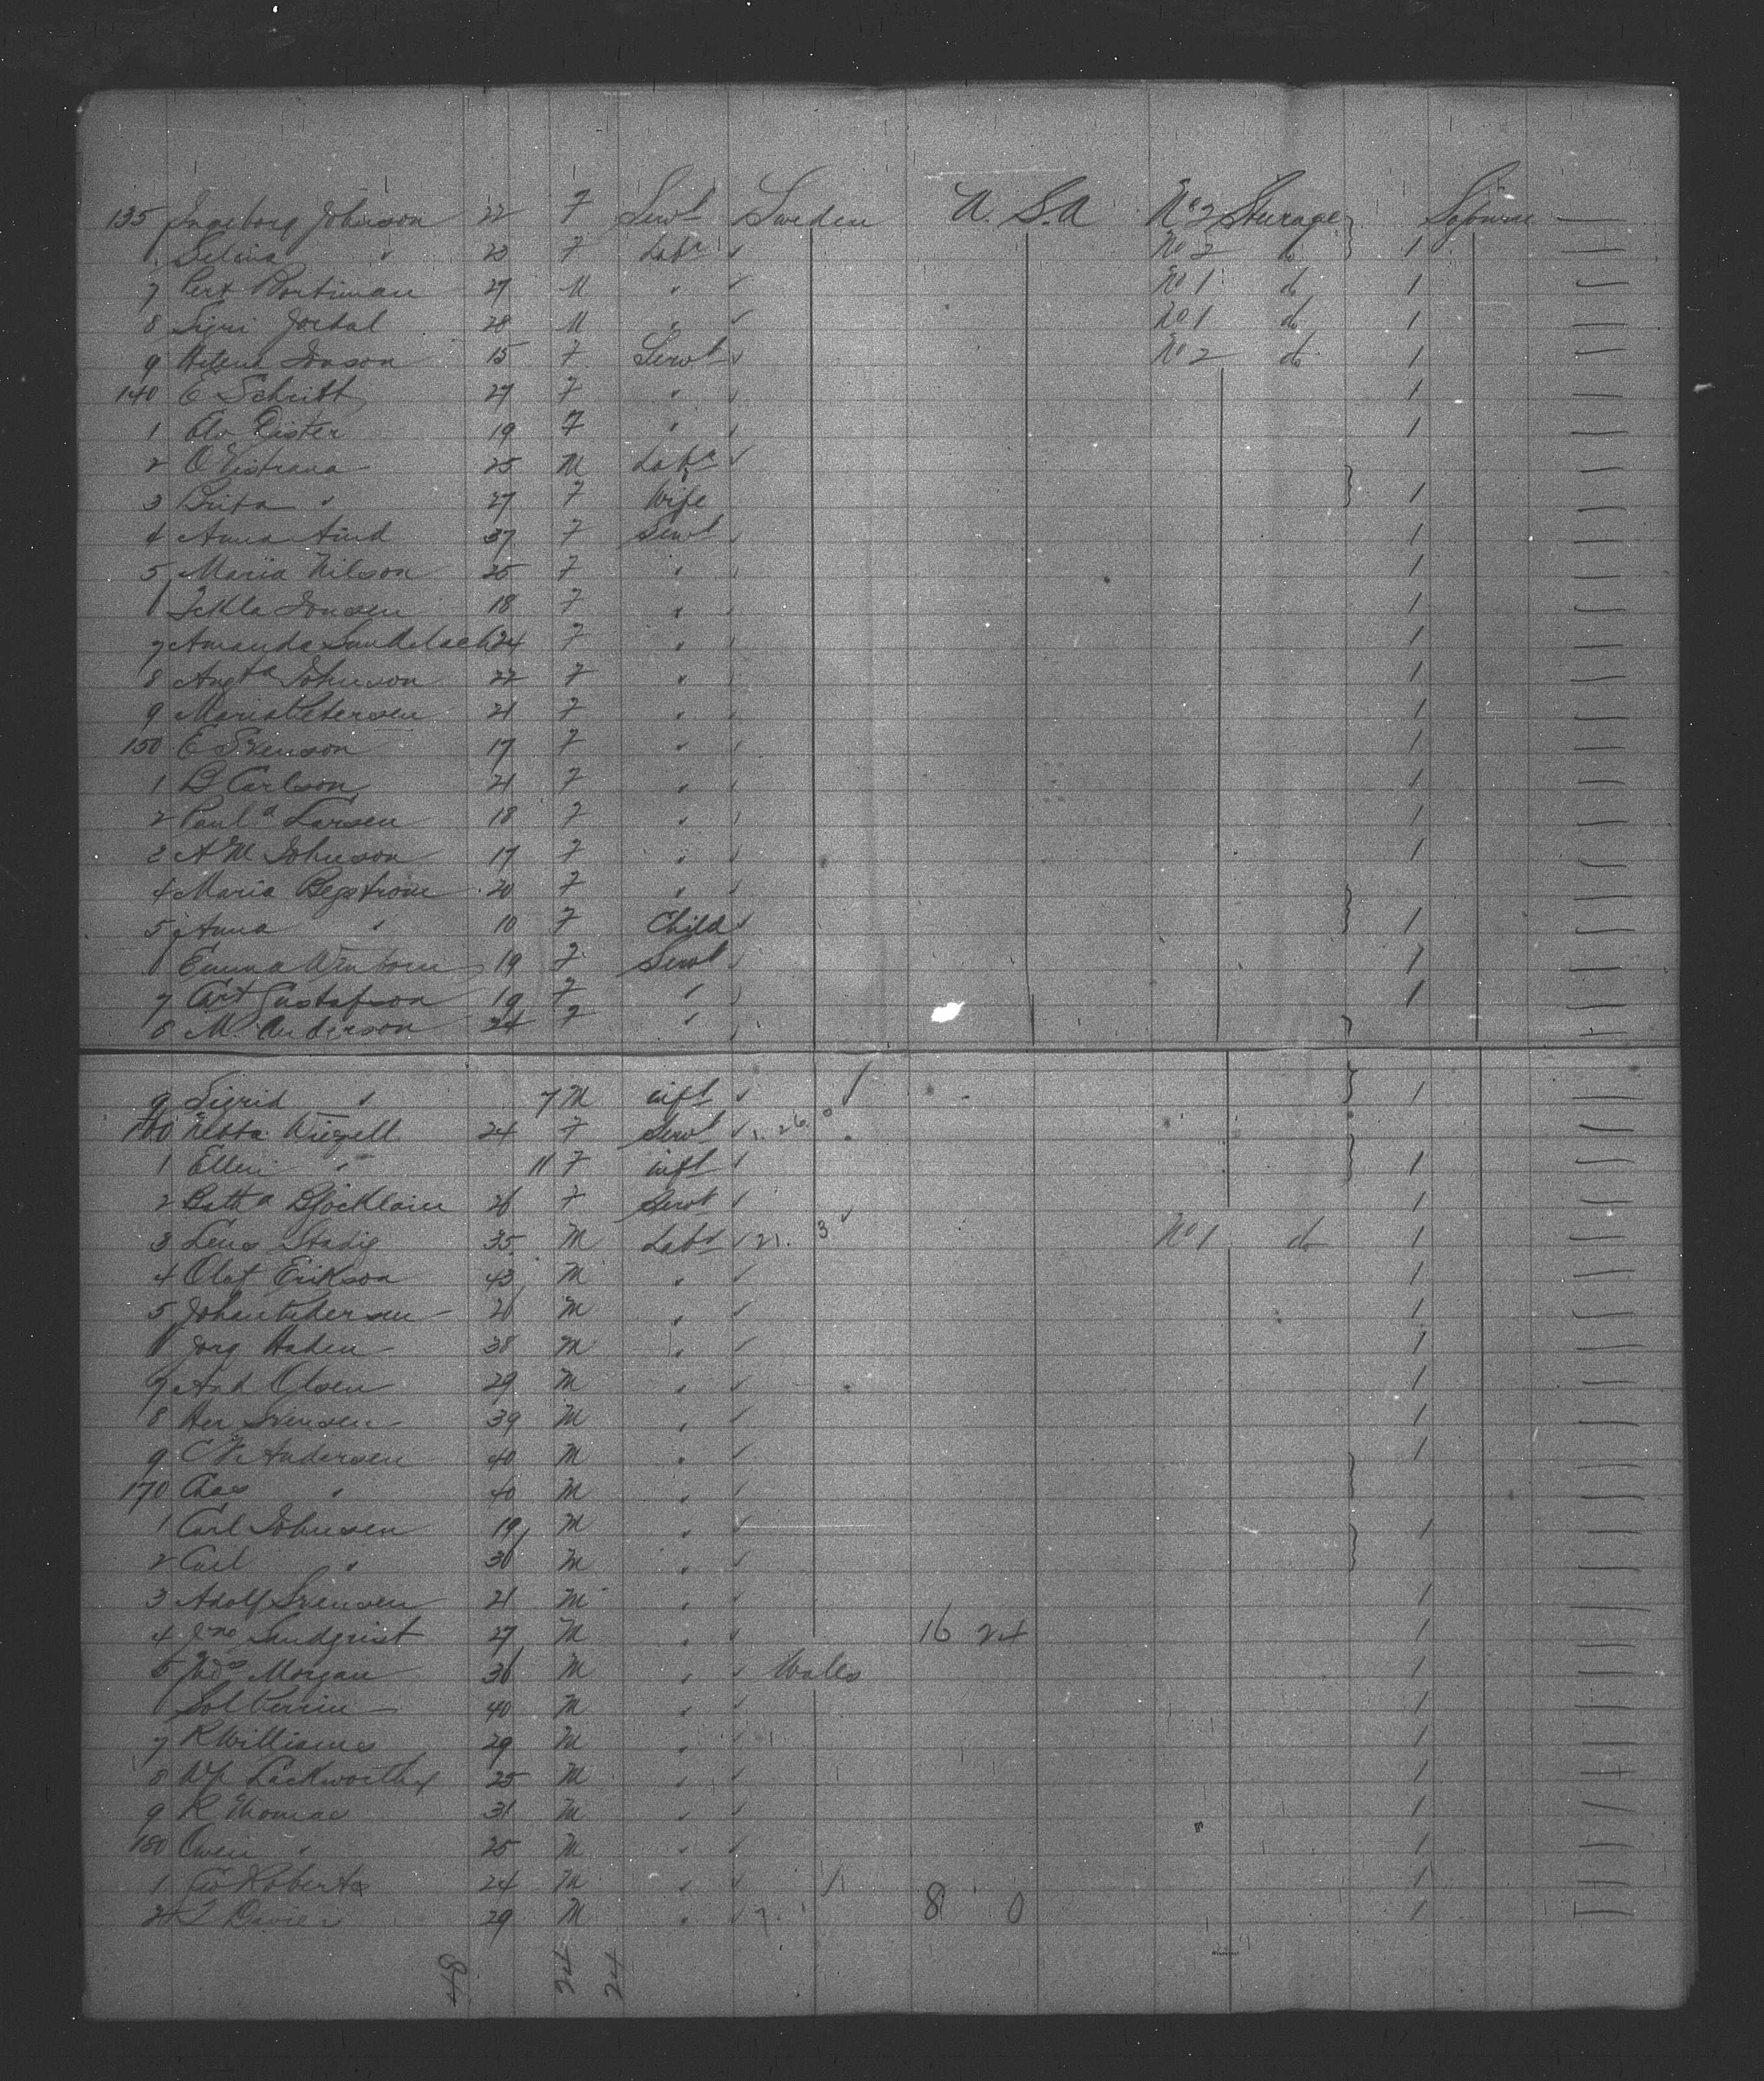 135 Ingeborg Johnson 22 F Servt Sweden U.S.A No 2 Sturage Sojourn —
6 Selina " 23 F Labr ✓ No 2 do 1
7 Pert Portiman 27 M " ✓ No 1 do 1
8 Sigri Jordal 28 M " ✓ No 1 do 1
9 Helena Jonson 15 F Servt ✓ No 2 do 1
140 E Schritt 27 F " ✓ 1
1 Eister 19 F " ✓ 1
2 O Vistrana 25 M Labr ✓
3 Brita " 27 F Wife 1
4 Anna 37 F Servt ✓ 1
5 Maria Nilson 25 F " ✓ 1
6 Tekla Jonsen 18 F " ✓ 1
7 Amanda 24 F " ✓ 1
8 Augta Johnson 22 F " ✓ 1
9 Maria Petersen 21 F " ✓ 1
150 E Svenson 17 F " ✓ 1
1 B Carlson 21 F " ✓ 1
2 Paula Larsen 18 F " ✓ 1
3 A M Johnson 17 F " ✓ 1
4 Maria Begstrom 20 F " ✓
5 Anna " 10 F Child ✓ 1
6 Emma Winborn 19 F Servt ✓ 1
7 Gustafson 19 F " ✓ 1
8 M. Anderson 24 F " ✓
9 Sigrid " 7 M inft ✓ 1
160 Netta Wigell 24 F Servt ✓ 1. 26.
1 Ellen " 11 F inft ✓ 1
2 26 F Servt ✓ 1
3 Lens Stadig 35 M Labr ✓ 21. 3 No 1 do 1
4 Olof Erikson 43 M " ✓ 1
5 Johan Pedersen M " ✓ 1
6 Jorg Haden 38 M " ✓ 1
7 And Olsen 29 M " ✓ 1
8 Svensen 39 M " ✓ 1
9 Andersen 40 M " ✓ 1
170 Chas " 40 M " ✓
1 Carl Johnsen 19 M " ✓ 1
2 Carl " 36 M " ✓
3 Adolf Svensen 21 M " ✓ 1
4 Jno Sundqrist 27 M " ✓ 16 24 1
5 Thos Morgan 36 M " ✓ Walls 1
6 Sol 40 M " ✓ 1
7 R Williams 29 M " ✓ 1
8 Wm Lackworthy 25 M " ✓ 1
9 R Thomas 31 M " ✓ 1
180 Owen " 25 M " ✓ 1
1 Geo Roberts 24 M " ✓ 1
2 Davies 29 M " ✓ 7. 8 0 1
24 24